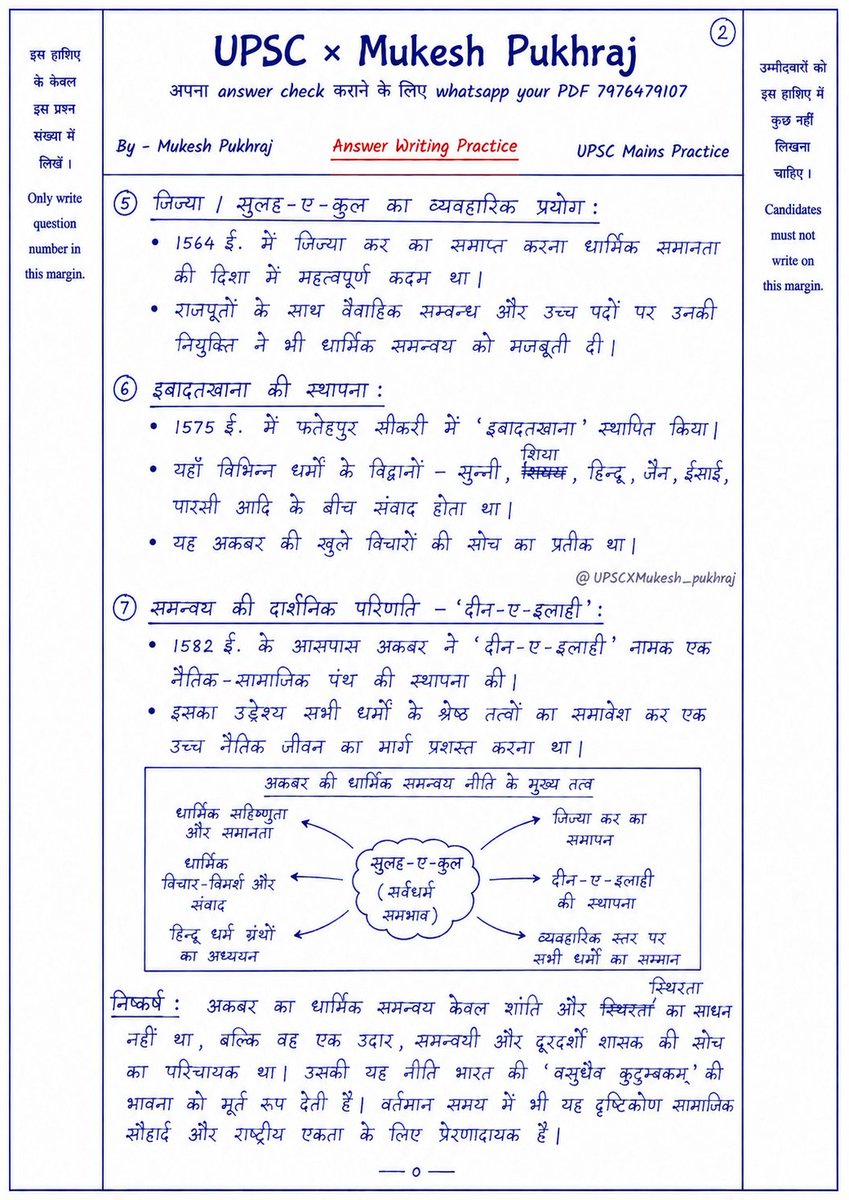 ②
UPSC × Mukesh Pukhraj
अपना answer check कराने के लिए whatsapp your PDF 7976479107
By - Mukesh Pukhraj
Answer Writing Practice
UPSC Mains Practice
इस हाशिए
के केवल
इस प्रश्न
संख्या में
लिखें ।
Only write
question
number in
this margin.
उम्मीदवारों को
इस हाशिए में
कुछ नहीं
लिखना
चाहिए ।
Candidates
must not
write on
this margin.
⑤ जिज्या / सुलह-ए-कुल का व्यवहारिक प्रयोग :
• 1564 ई. में जिज्या कर का समाप्त करना धार्मिक समानता
की दिशा में महत्वपूर्ण कदम था |
• राजपूतों के साथ वैवाहिक सम्वन्ध और उच्च पदों पर उनकी
नियुक्ति ने भी धार्मिक समन्वय को मजबूती दी |
⑥ इबादतखाना की स्थापना :
• 1575 ई. में फतेहपुर सीकरी में ‘इबादतखाना’ स्थापित किया |
शिया
• यहाँ विभिन्न धर्मों के विद्वानों – सुन्नी, , हिन्दू, जैन, ईसाई,
पारसी आदि के बीच संवाद होता था |
• यह अकबर की खुले विचारों की सोच का प्रतीक था |
@UPSCXMukesh_pukhraj
⑦ समन्वय की दार्शनिक परिणति – ‘दीन-ए-इलाही’ :
• 1582 ई. के आसपास अकबर ने ‘दीन-ए-इलाही’ नामक एक
नैतिक-सामाजिक पंथ की स्थापना की |
• इसका उद्देश्य सभी धर्मों के श्रेष्ठ तत्वों का समावेश कर एक
उच्च नैतिक जीवन का मार्ग प्रशस्त करना था |
अकबर की धार्मिक समन्वय नीति के मुख्य तत्व
धार्मिक सहिष्णुता
और समानता
धार्मिक
विचार-विमर्श और
संवाद
हिन्दू धर्म ग्रंथों
का अध्ययन
सुलह-ए-कुल
(सर्वधर्म
समभाव)
जिज्या कर का
समापन
दीन-ए-इलाही
की स्थापना
व्यवहारिक स्तर पर
सभी धर्मों का सम्मान
स्थिरता
निष्कर्ष : अकबर का धार्मिक समन्वय केवल शांति और स्थिरता का साधन
नहीं था, बल्कि वह एक उदार, समन्वयी और दूरदर्शी शासक की सोच
का परिचायक था | उसकी यह नीति भारत की ‘वसुधैव कुटुम्बकम्’ की
भावना को मूर्त रूप देती है | वर्तमान समय में भी यह दृष्टिकोण सामाजिक
सौहार्द और राष्ट्रीय एकता के लिए प्रेरणादायक है |
— 0 —